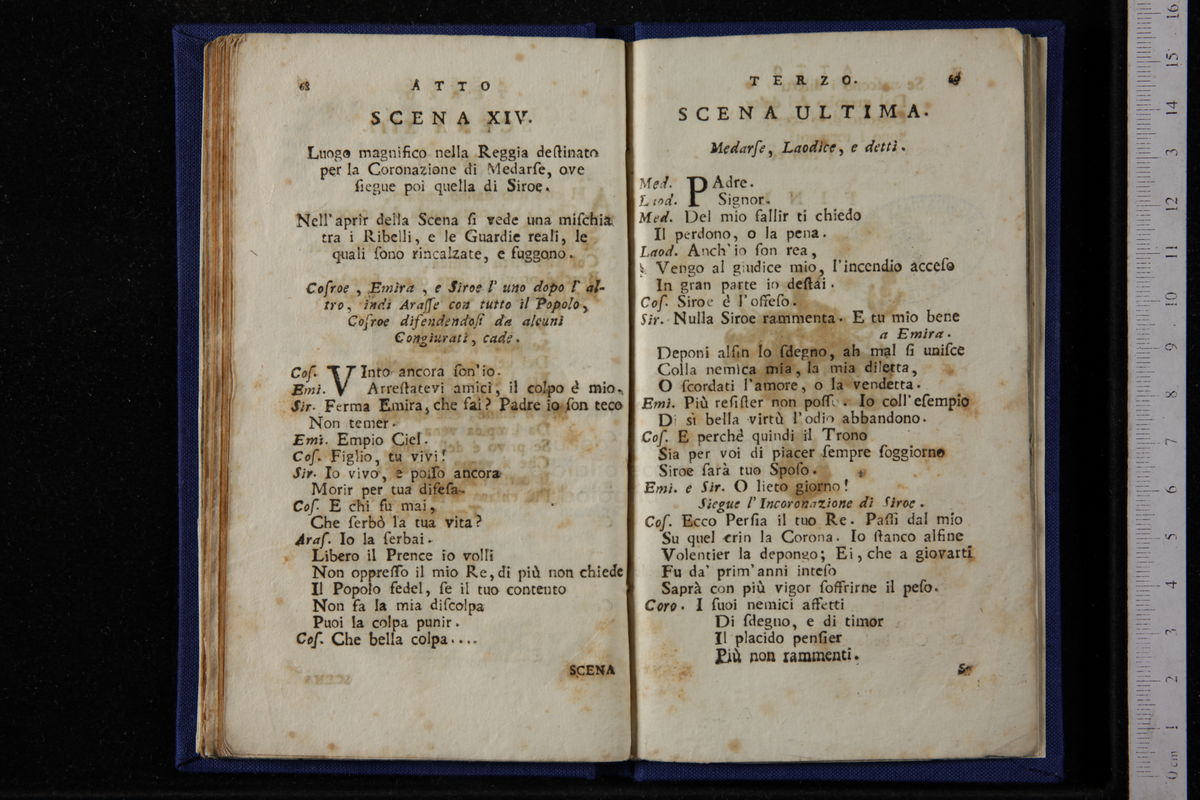 68 ATTO
SCENA XIV.
Luogo magnifico nella Reggia deſtinato
per la Coronazione di Medarſe, ove
ſiegue poi quella di Siroe.
Nell'aprir della Scena ſi vede una miſchia
tra i Ribelli, e le Guardie reali, le
quali ſono rincalzate, e fuggono.
Coſroe, Emira, e Siroe l' uno dopo l' al-
tro, indi Araſſe con tutto il Popolo,
Coſroe difendendoſi da alcuni
Congiurati, cade.
Coſ. VInto ancora ſon'io.
Emi. Arreſtatevi amici, il colpo è mio.
Sir. Ferma Emira, che fai? Padre io ſon teco
Non temer.
Emi. Empio Ciel.
Coſ. Figlio, tu vivi!
Sir. Io vivo, e poſſo ancora
Morir per tua difeſa.
Coſ. E chi fu mai,
Che ſerbò la tua vita?
Araſ. Io la ſerbai.
Libero il Prence io volli
Non oppreſſo il mio Re, di più non chiede
Il Popolo fedel, ſe il tuo contento
Non fa la mia diſcolpa
Puoi la colpa punir.
Coſ. Che bella colpa....
SCENA
TERZO. 69
SCENA ULTIMA.
Medarſe, Laodice, e detti.
Med. PAdre.
Laod. Signor.
Med. Del mio fallir ti chiedo
Il perdono, o la pena.
Laod. Anch'io ſon rea,
Vengo al giudice mio, l'incendio acceſo
In gran parte io deſtai.
Coſ. Siroe è l'offeſo.
Sir. Nulla Siroe rammenta. E tu mio bene
a Emira.
Deponi alfin lo ſdegno, ah mal ſi uniſce
Colla nemica mia, la mia diletta,
O ſcordati l'amore, o la vendetta.
Emi. Più reſiſter non poſſo. Io coll'eſempio
Di sì bella virtù l'odio abbandono.
Coſ. E perchè quindi il Trono
Sia per voi di piacer ſempre ſoggiorno
Siroe ſarà tuo Spoſo.
Emi. e Sir. O lieto giorno!
Siegue l'Incoronazione di Siroe.
Coſ. Ecco Perſia il tuo Re. Paſſi dal mio
Su quel crin la Corona. Io ſtanco alfine
Volentier la depongo; Ei, che a giovarti
Fu da' prim'anni inteſo
Saprà con più vigor ſoffrirne il peſo.
Coro. I ſuoi nemici affetti
Di ſdegno, e di timor
Il placido penſier
Più non rammenti.
Se
0 cm 1 2 3 4 5 6 7 8 9 10 11 12 13 14 15 16